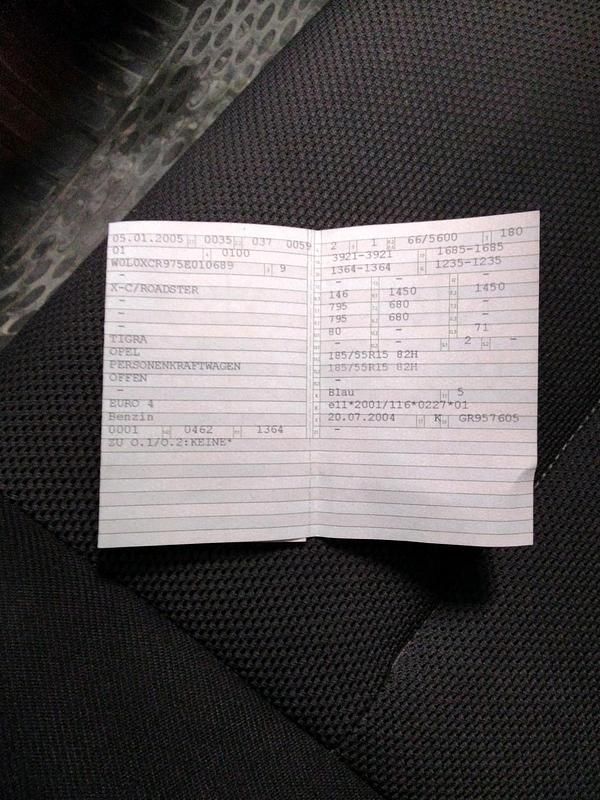 05.01.2005 0035 037 0059
01 0100
W0L0XCR975E010689 9
-
X-C/ROADSTER
-
-
-
TIGRA
OPEL
PERSONENKRAFTWAGEN
OFFEN
-
EURO 4
Benzin
0001 0462 1364
ZU O.1/O.2:KEINE*
2 1 66/5600 180
3921-3921 1685-1685
1364-1364 1235-1235
- - -
146 1450 1450
795 680 -
795 680 -
80 - 71
- 2 -
185/55R15 82H
185/55R15 82H
-
Blau 5
e11*2001/116*0227*01
20.07.2004 K GR957605
-